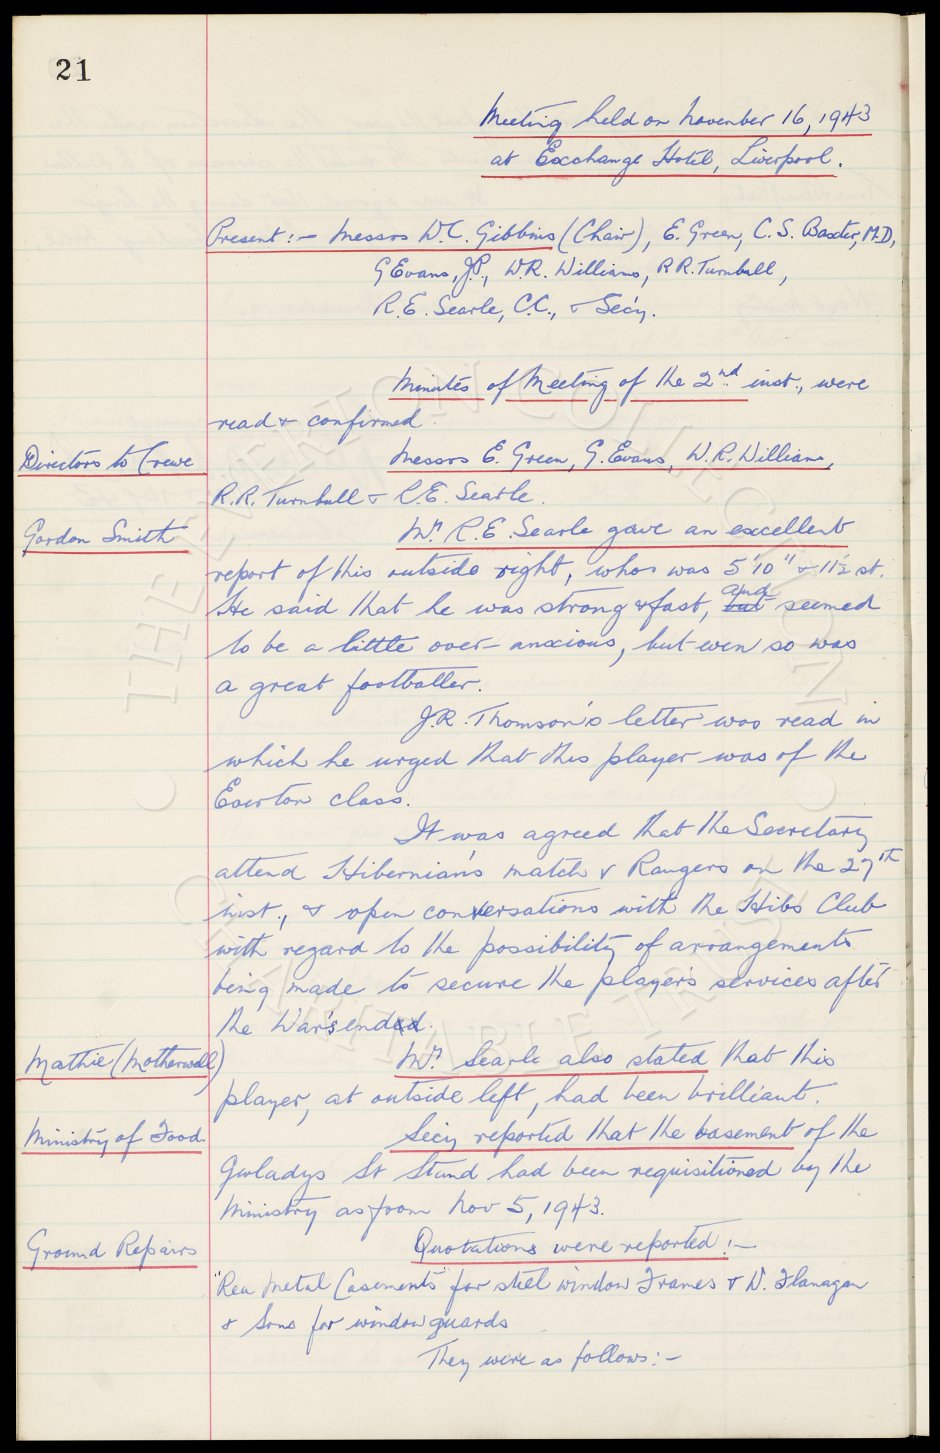 21
Meeting held on November 16, 1943
at Exchange Hotel, Liverpool.
Present:- Messrs W.C. Gibbins (Chair), E. Green, C.S. Baxter, M.D,
G Evans, J.P., W.R. Williams, R.R. Turnbull,
R.E. Searle, C.C., & Sec'y.
Minutes of Meeting of the 2nd inst., were
read & confirmed
Directors to Crewe
Messrs E. Green, G. Evans, W.R. Williams,
R.R. Turnbull & R.E. Searle.
Gordon Smith
Mr. R.E. Searle gave an excellent
report of this outside right, who was 5'10" & 11½ st.
and
He said that he was strong & fast, but seemed
to be a little over-anxious, but even so was
a great footballer.
J.R. Thomson's letter was read in
which he urged that this player was of the
Everton class.
It was agreed that the Secretary
attend Hibernian's match v Rangers on the 27th
inst., & open conversations with the Hibs Club
with regard to the possibility of arrangements
being made to secure the player's services after
the War's ended.
Mathie (Motherwell)
Mr. Searle also stated that this
player, at outside left, had been brilliant.
Ministry of Food.
Secy reported that the basement of the
Gwladys St Stand had been requisitioned by the
Ministry as from Nov 5, 1943.
Ground Repairs
Quotations were reported:-
"Rea Metal Casements" for steel window Frames & W. Flanagan
& Sons for window guards
They were as follows:-
THE EVERTON COLLECTION
CHARITABLE TRUST